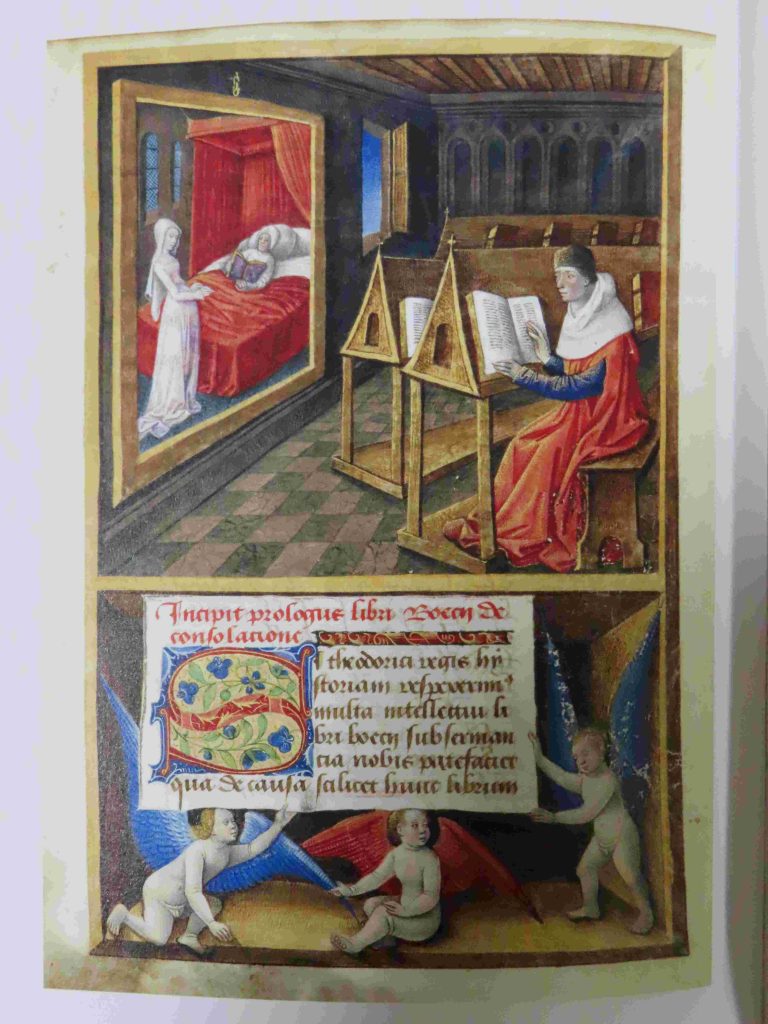 Incipit prologus libri Boecij de
consolatione
Si theodorici regis hy
storiam respexerimꝰ
multa intellectui li
bri boecij subseruian
cia nobis patefaciet
qua de causa scilicet hunc librum